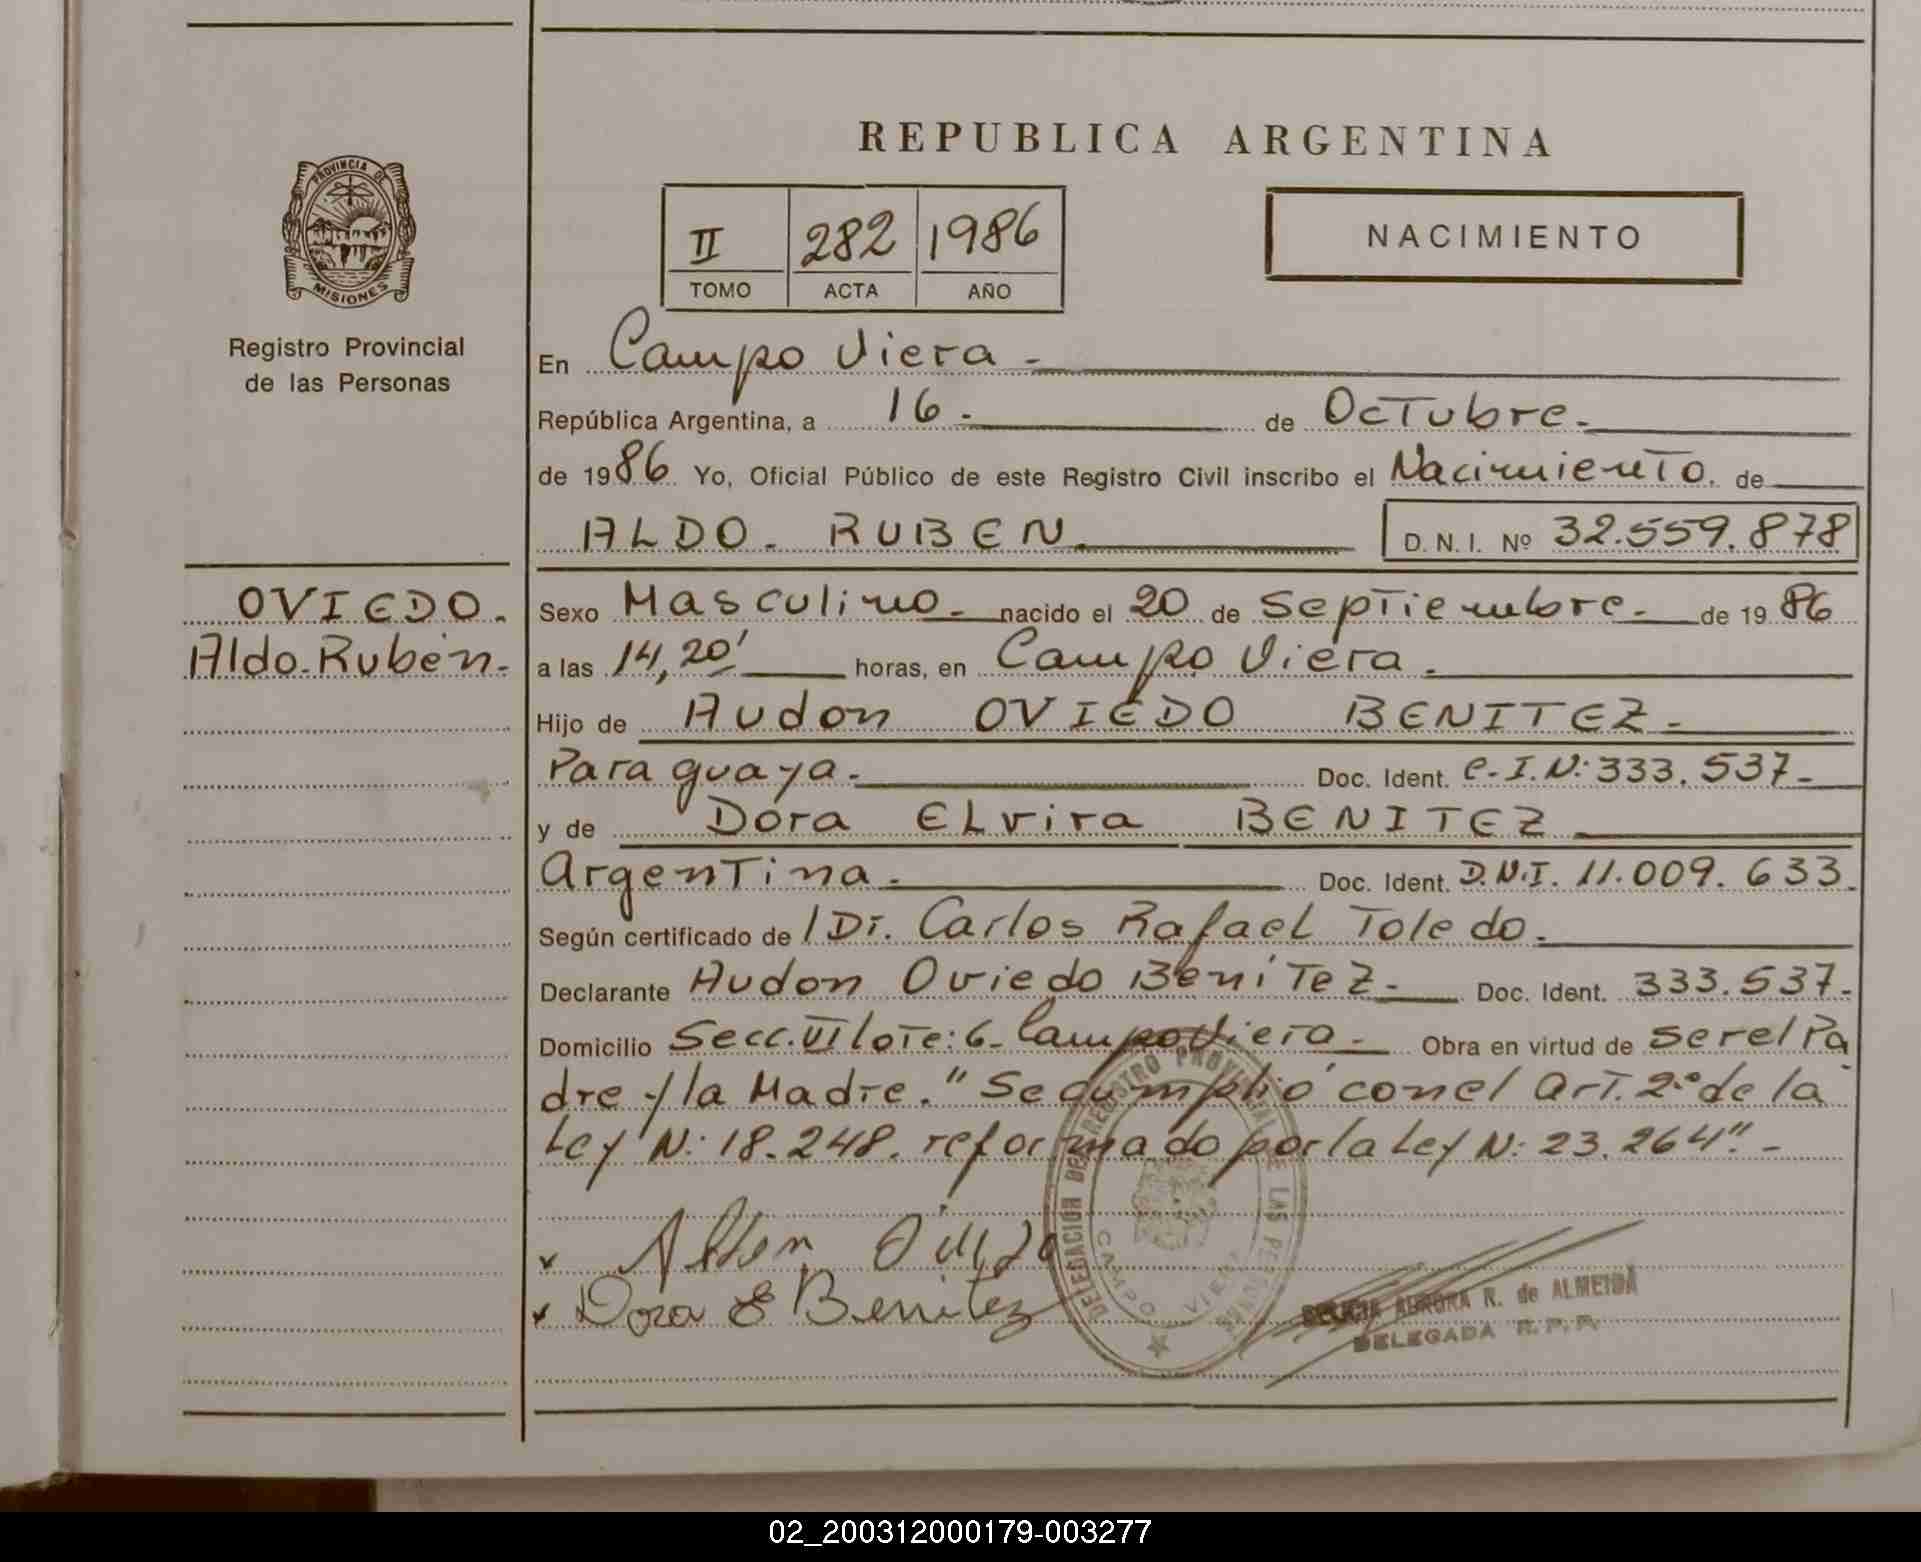 REPUBLICA ARGENTINA
PROVINCIA DE
MISIONES
II 282 1986
TOMO ACTA AÑO
NACIMIENTO
Registro Provincial
de las Personas
En Campo Viera -
República Argentina, a 16.- de Octubre.-
de 1986. Yo, Oficial Público de este Registro Civil inscribo el Nacimiento. de
ALDO. RUBEN. D. N. I. Nº 32.559.878
OVIEDO.
Aldo-Rubén.-
Sexo Masculino.- nacido el 20 de Septiembre.- de 1986
a las 14,20' horas, en Campo Viera.
Hijo de Audon OVIEDO BENITEZ.-
Paraguaya.- Doc. Ident. C.I.N: 333.537-
y de Dora ELvira BENITEZ
Argentina.- Doc. Ident. D.N.I. 11.009.633.
Según certificado de / Dr. Carlos Rafael Toledo.-
Declarante Audon Oviedo Benítez.- Doc. Ident. 333.537.-
Domicilio Secc. VI lote: 6- Campo Viera.- Obra en virtud de ser el Pa
dre y la Madre. "Se cumplió con el Art. 2º de la
Ley N: 18.248. reformado por la Ley N: 23.264".-
x Oviedo
x Dora E Benitez
DELEGACIÓN DEL REGISTRO PROVINCIAL DE LAS PERSONAS
CAMPO VIERA
AURORA R. de ALMEIDA
DELEGADA R. P. P.
02_200312000179-003277